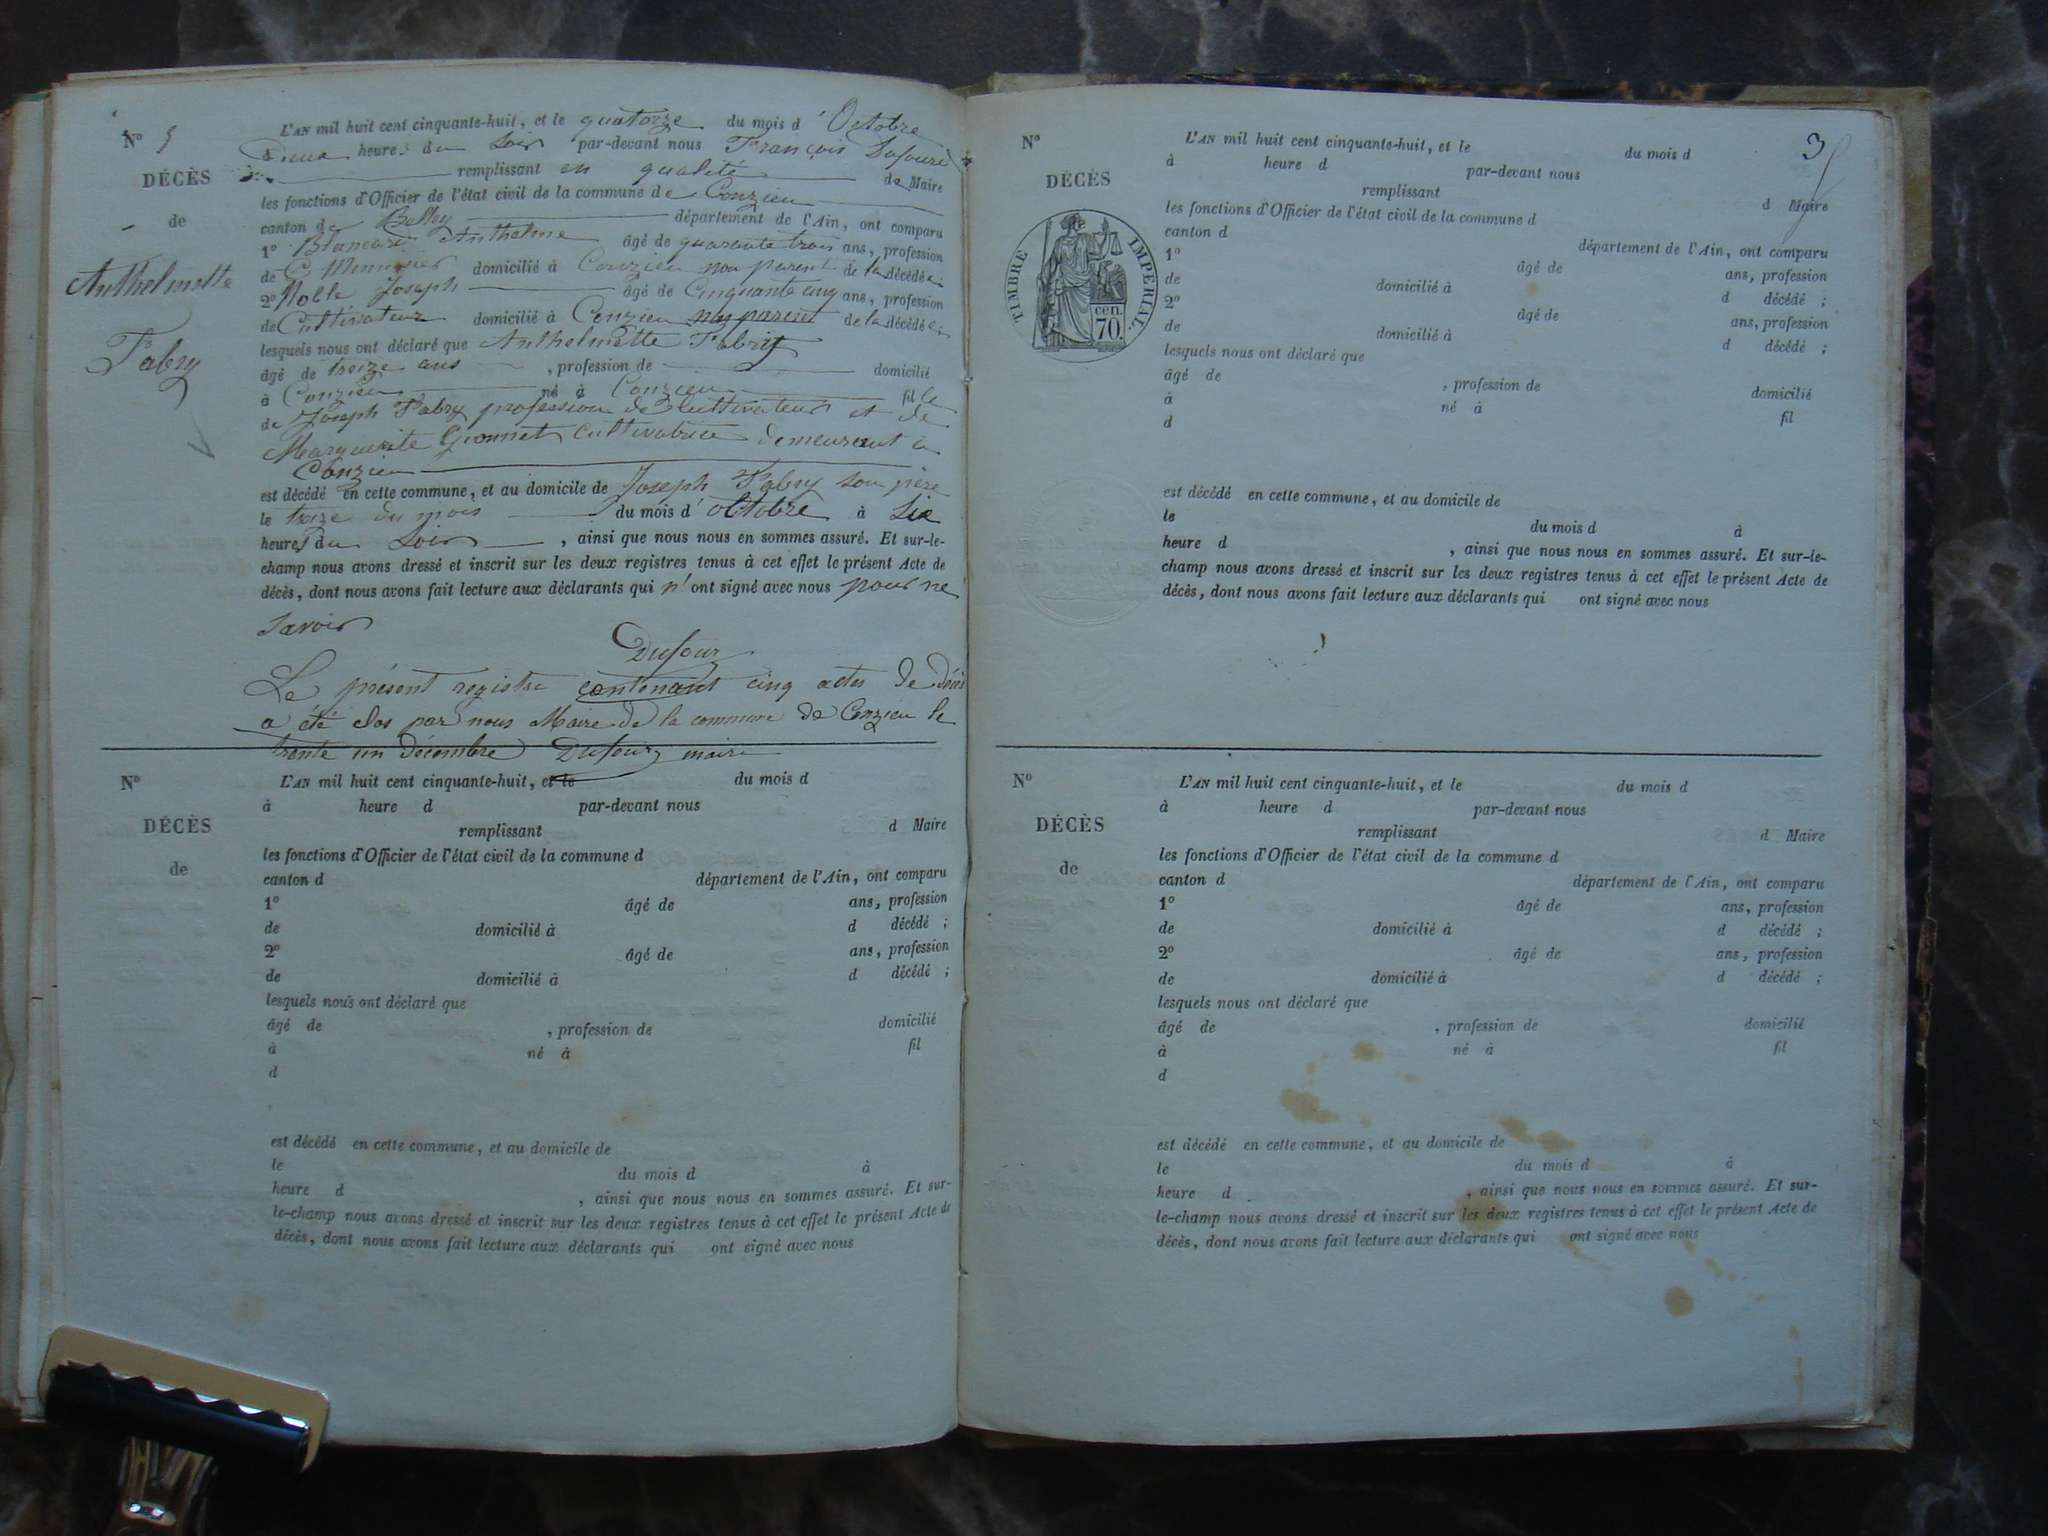 N° 5
DÉCÈS
de
Anthelmette
Fabry
L'AN mil huit cent cinquante-huit, et le quatorze du mois d'Octobre
à Deux heures du Soir par-devant nous François Dufour
remplissant en qualité de Maire
les fonctions d'Officier de l'état civil de la commune de Conzieu
canton de Belley département de l'Ain, ont comparu
1° Anthelme âgé de quarante trois ans, profession
de Menuisier domicilié à Conzieu non parent de la décédée;
2° Joseph âgé de Cinquante cinq ans, profession
de Cultivateur domicilié à Conzieu non parent de la décédée;
lesquels nous ont déclaré que Anthelmette Fabry
âgé de treize ans, profession de domicilié
à Conzieu né à Conzieu fille
de Joseph Fabry profession de Cultivateur et de
Marguerite cultivatrice demeurant à
Conzieu
est décédé en cette commune, et au domicile de Joseph Fabry son père
le treize du mois du mois d'octobre à Six
heures du Soir, ainsi que nous nous en sommes assuré. Et sur-le-
champ nous avons dressé et inscrit sur les deux registres tenus à cet effet le présent Acte de
décès, dont nous avons fait lecture aux déclarants qui n'ont signé avec nous pour ne
Savoir
Dufour
Le présent registre contenant cinq actes de décès
a été clos par nous Maire de la commune de Conzieu le
trente un décembre Dufour maire
N°
DÉCÈS
de
L'AN mil huit cent cinquante-huit, et le du mois d
à heure d par-devant nous
remplissant d Maire
les fonctions d'Officier de l'état civil de la commune d
canton d département de l'Ain, ont comparu
1° âgé de ans, profession
de domicilié à d décédé ;
2° âgé de ans, profession
de domicilié à d décédé ;
lesquels nous ont déclaré que
âgé de , profession de domicilié
à né à fil
d
est décédé en cette commune, et au domicile de
le du mois d à
heure d , ainsi que nous nous en sommes assuré. Et sur-
le-champ nous avons dressé et inscrit sur les deux registres tenus à cet effet le présent Acte de
décès, dont nous avons fait lecture aux déclarants qui ont signé avec nous
3
N°
DÉCÈS
TIMBRE IMPÉRIAL.
cen.
70.
L'AN mil huit cent cinquante-huit, et le du mois d
à heure d par-devant nous
remplissant d Maire
les fonctions d'Officier de l'état civil de la commune d
canton d département de l'Ain, ont comparu
1° âgé de ans, profession
de domicilié à d décédé ;
2° âgé de ans, profession
de domicilié à d décédé ;
lesquels nous ont déclaré que
âgé de , profession de domicilié
à né à fil
d
est décédé en cette commune, et au domicile de
le du mois d à
heure d , ainsi que nous nous en sommes assuré. Et sur-le-
champ nous avons dressé et inscrit sur les deux registres tenus à cet effet le présent Acte de
décès, dont nous avons fait lecture aux déclarants qui ont signé avec nous
N°
DÉCÈS
de
L'AN mil huit cent cinquante-huit, et le du mois d
à heure d par-devant nous
remplissant d Maire
les fonctions d'Officier de l'état civil de la commune d
canton d département de l'Ain, ont comparu
1° âgé de ans, profession
de domicilié à d décédé ;
2° âgé de ans, profession
de domicilié à d décédé ;
lesquels nous ont déclaré que
âgé de , profession de domicilié
à né à fil
d
est décédé en cette commune, et au domicile de
le du mois d à
heure d , ainsi que nous nous en sommes assuré. Et sur-
le-champ nous avons dressé et inscrit sur les deux registres tenus à cet effet le présent Acte de
décès, dont nous avons fait lecture aux déclarants qui ont signé avec nous